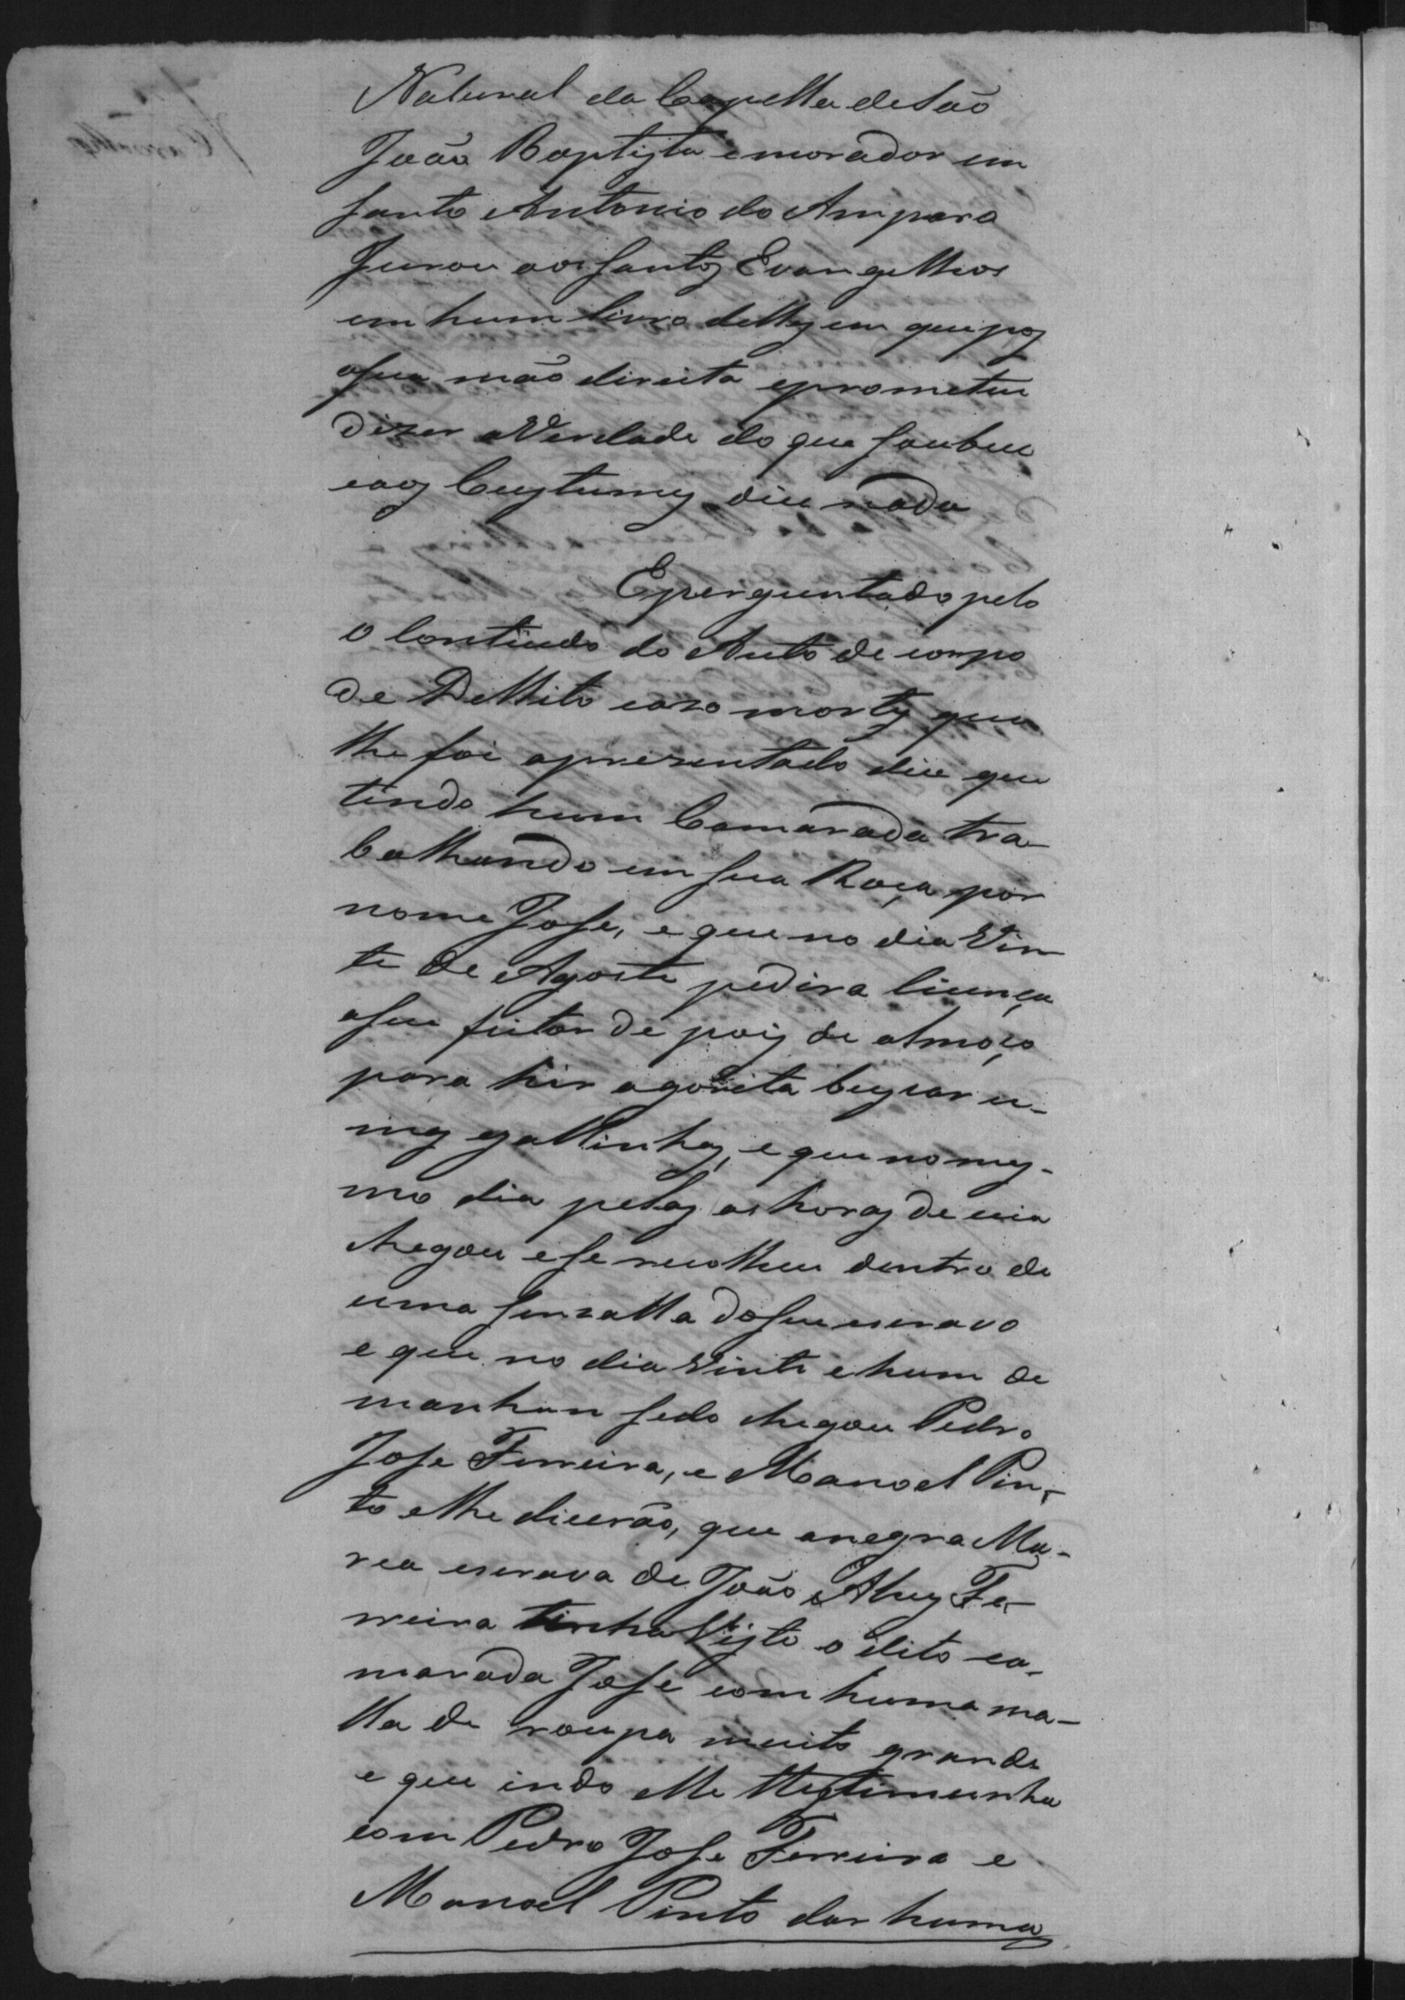 Natural da Capella de São
João Baptista e morador em
Santo Antonio do Amparo
Jurou aos Santos Evangelhos
em hum livro delles em que pos
a sua mão direita e prometeu
dizer a Verdade do que soubeu
e aos Custumes dice nada
E perguntado pelo
O Contiudo do Auto de corpo
de Dellito e aos mortes que
lhe foi aprezentado dice que
tindo hum Camarada tra-
balhando em sua Roça por
nome Jose, e que no dia Vin
te de Agosto pedira licença
a seu feitor de pois de almoço
para hir a gorita buscar u-
mas gallinhas, e que no mes-
mo dia pelas as horas de ceia
chegou e se recolheu dentro de
uma senzalla do seu escravo
e que no dia vinte e hum de
manhan sedo chegou Pedro
Jose Ferreira, e Manoel Pin-
to e lhe dicerão, que a negra Ma-
rea escrava de João Alves Fe-
rreira tinha Visto o dito ca-
marada Jose com huma ma-
lla de roupa muito grande
e que indo elle testimunha
com Pedro Jose Ferreira e
Manoel Pinto dar huma